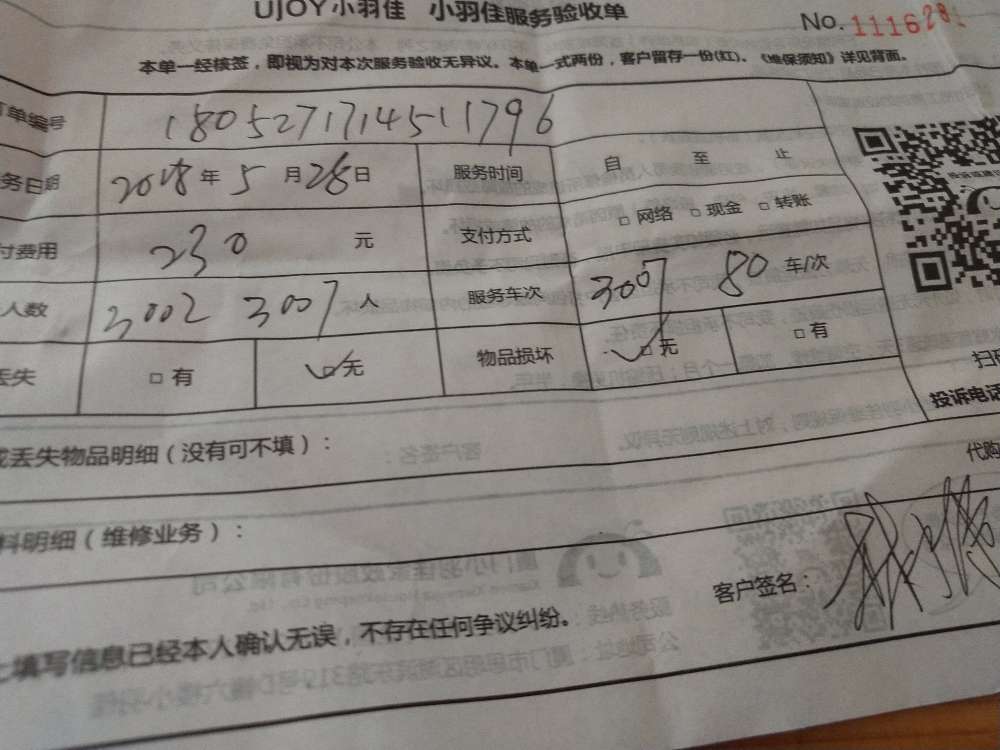 UJOY小羽佳 小羽佳服务验收单
No. 111628
本单一经核签，即视为对本次服务验收无异议。本单一式两份，客户留存一份(红)。《维保须知》详见背面。
订单编号 180527171451796
务日期 2018年5月28日 服务时间 自 至 止
付费用 230 元 支付方式 □网络 □现金 □转账
人数 3002 3007人 服务车次 3007 80 车/次
丢失 □有 □无 物品损坏 □无 □有
扫
投诉电话
丢失物品明细（没有可不填）：
代购
料明细（维修业务）：
客户签名：
上填写信息已经本人确认无误，不存在任何争议纠纷。